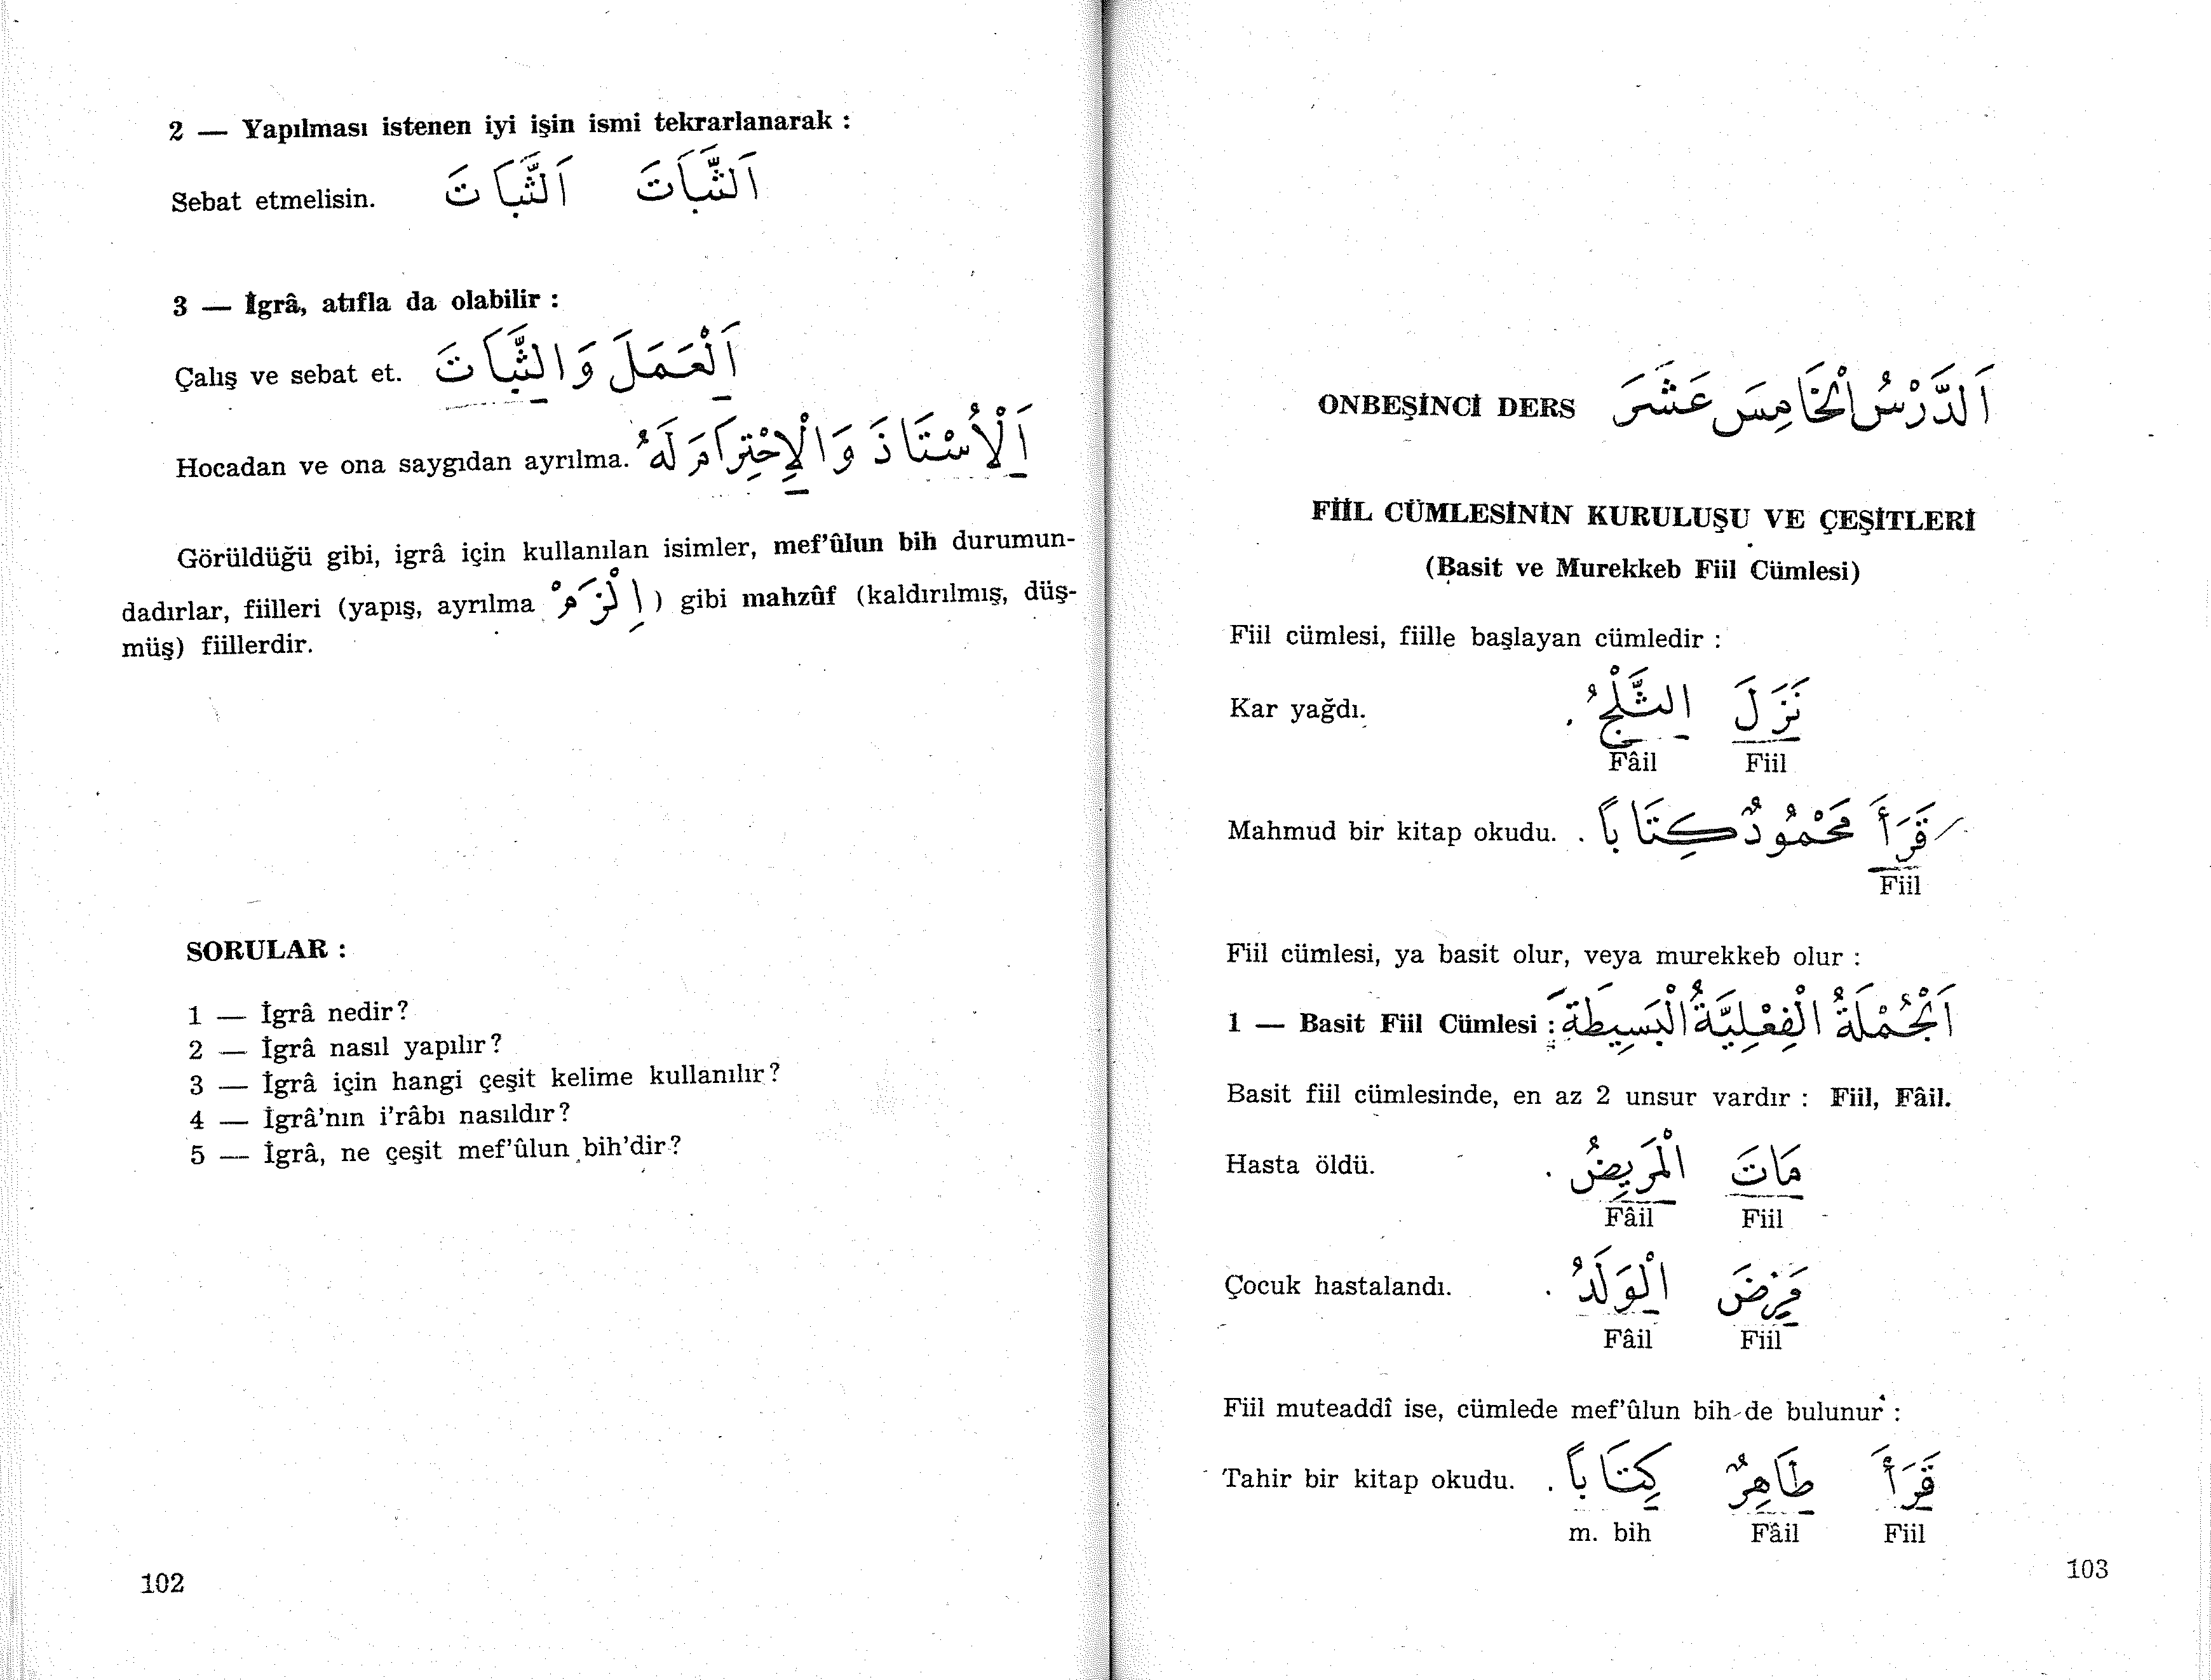 2 — Yapılması istenen iyi işin ismi tekrarlanarak :
Sebat etmelisin. اَلثَّبَاتَ اَلثَّبَاتَ
3 — İgrâ, atıfla da olabilir :
Çalış ve sebat et. اَلْعَمَلَ وَالثَّبَاتَ
Hocadan ve ona saygıdan ayrılma. اَلْأُسْتَاذَ وَالْاِحْتِرَامَ لَهُ
Görüldüğü gibi, igrâ için kullanılan isimler, mef'ûlun bih durumun-
dadırlar, fiilleri (yapış, ayrılma اِلْزَمْ ) gibi mahzûf (kaldırılmış, düş-
müş) fiillerdir.
SORULAR :
1 — İgrâ nedir?
2 — İgrâ nasıl yapılır?
3 — İgrâ için hangi çeşit kelime kullanılır?
4 — İgrâ'nın i'râbı nasıldır?
5 — İgrâ, ne çeşit mef'ûlun bih'dir?
102
ONBEŞİNCİ DERS اَلدَّرْسُ الْخَامِسَ عَشَرَ
FİİL CÜMLESİNİN KURULUŞU VE ÇEŞİTLERİ
(Basit ve Murekkeb Fiil Cümlesi)
Fiil cümlesi, fiille başlayan cümledir :
Kar yağdı. نَزَلَ الثَّلْجُ .
Fâil Fiil
Mahmud bir kitap okudu. قَرَأَ مَحْمُودٌ كِتَابًا .
Fiil
Fiil cümlesi, ya basit olur, veya murekkeb olur :
1 — Basit Fiil Cümlesi : اَلْجُمْلَةُ الْفِعْلِيَّةُ الْبَسِيطَةُ
Basit fiil cümlesinde, en az 2 unsur vardır : Fiil, Fâil.
Hasta öldü. مَاتَ الْمَرِيضُ .
Fâil Fiil
Çocuk hastalandı. مَرِضَ الْوَلَدُ .
Fâil Fiil
Fiil muteaddî ise, cümlede mef'ûlun bih de bulunur :
Tahir bir kitap okudu. قَرَأَ طَاهِرٌ كِتَابًا .
m. bih Fâil Fiil
103